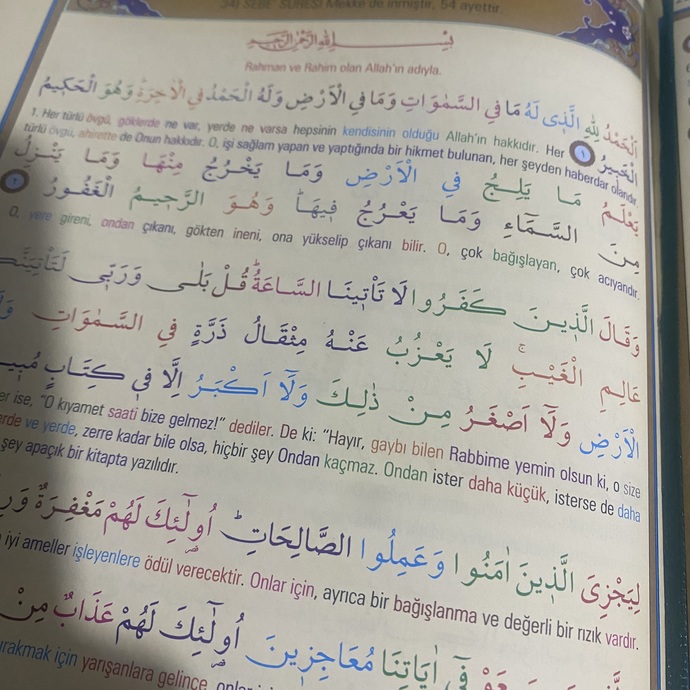 34) SEBE' SÛRESİ Mekke'de inmiştir, 54 ayettir.
بِسْمِ اللّٰهِ الرَّحْمٰنِ الرَّحٖيمِ
Rahman ve Rahim olan Allah'ın adıyla.
اَلْحَمْدُ لِلّٰهِ الَّذٖى لَهُ مَا فِى السَّمٰوَاتِ وَمَا فِى الْاَرْضِ وَلَهُ الْحَمْدُ فِى الْاٰخِرَةِ وَهُوَ الْحَكٖيمُ
الْخَبٖيرُ ١
1. Her türlü övgü, göklerde ne var, yerde ne varsa hepsinin kendisinin olduğu Allah'ın hakkıdır. Her
türlü övgü, ahirette de Onun hakkıdır. O, işi sağlam yapan ve yaptığında bir hikmet bulunan, her şeyden haberdar olandır.
يَعْلَمُ مَا يَلِجُ فِى الْاَرْضِ وَمَا يَخْرُجُ مِنْهَا وَمَا يَنْزِلُ
مِنَ السَّمَٓاءِ وَمَا يَعْرُجُ فٖيهَا وَهُوَ الرَّحٖيمُ الْغَفُورُ ٢
O, yere gireni, ondan çıkanı, gökten ineni, ona yükselip çıkanı bilir. O, çok bağışlayan, çok acıyandır.
وَقَالَ الَّذٖينَ كَفَرُوا لَا تَاْتٖينَا السَّاعَةُ قُلْ بَلٰى وَرَبّٖى لَتَاْتِيَنَّكُمْ
عَالِمِ الْغَيْبِ لَا يَعْزُبُ عَنْهُ مِثْقَالُ ذَرَّةٍ فِى السَّمٰوَاتِ وَلَا
الْاَرْضِ وَلَٓا اَصْغَرُ مِنْ ذٰلِكَ وَلَٓا اَكْبَرُ اِلَّا فٖى كِتَابٍ
er ise, "O kıyamet saati bize gelmez!" dediler. De ki: "Hayır, gaybı bilen Rabbime yemin olsun ki, o size
erde ve yerde, zerre kadar bile olsa, hiçbir şey Ondan kaçmaz. Ondan ister daha küçük, isterse de daha
şey apaçık bir kitapta yazılıdır.
لِيَجْزِىَ الَّذٖينَ اٰمَنُوا وَعَمِلُوا الصَّالِحَاتِ اُولٰٓئِكَ لَهُمْ مَغْفِرَةٌ
iyi ameller işleyenlere ödül verecektir. Onlar için, ayrıca bir bağışlanma ve değerli bir rızık vardır.
فٖٓى اٰيَاتِنَا مُعَاجِزٖينَ اُولٰٓئِكَ لَهُمْ عَذَابٌ مِنْ
ırakmak için yarışanlara gelince, onlar